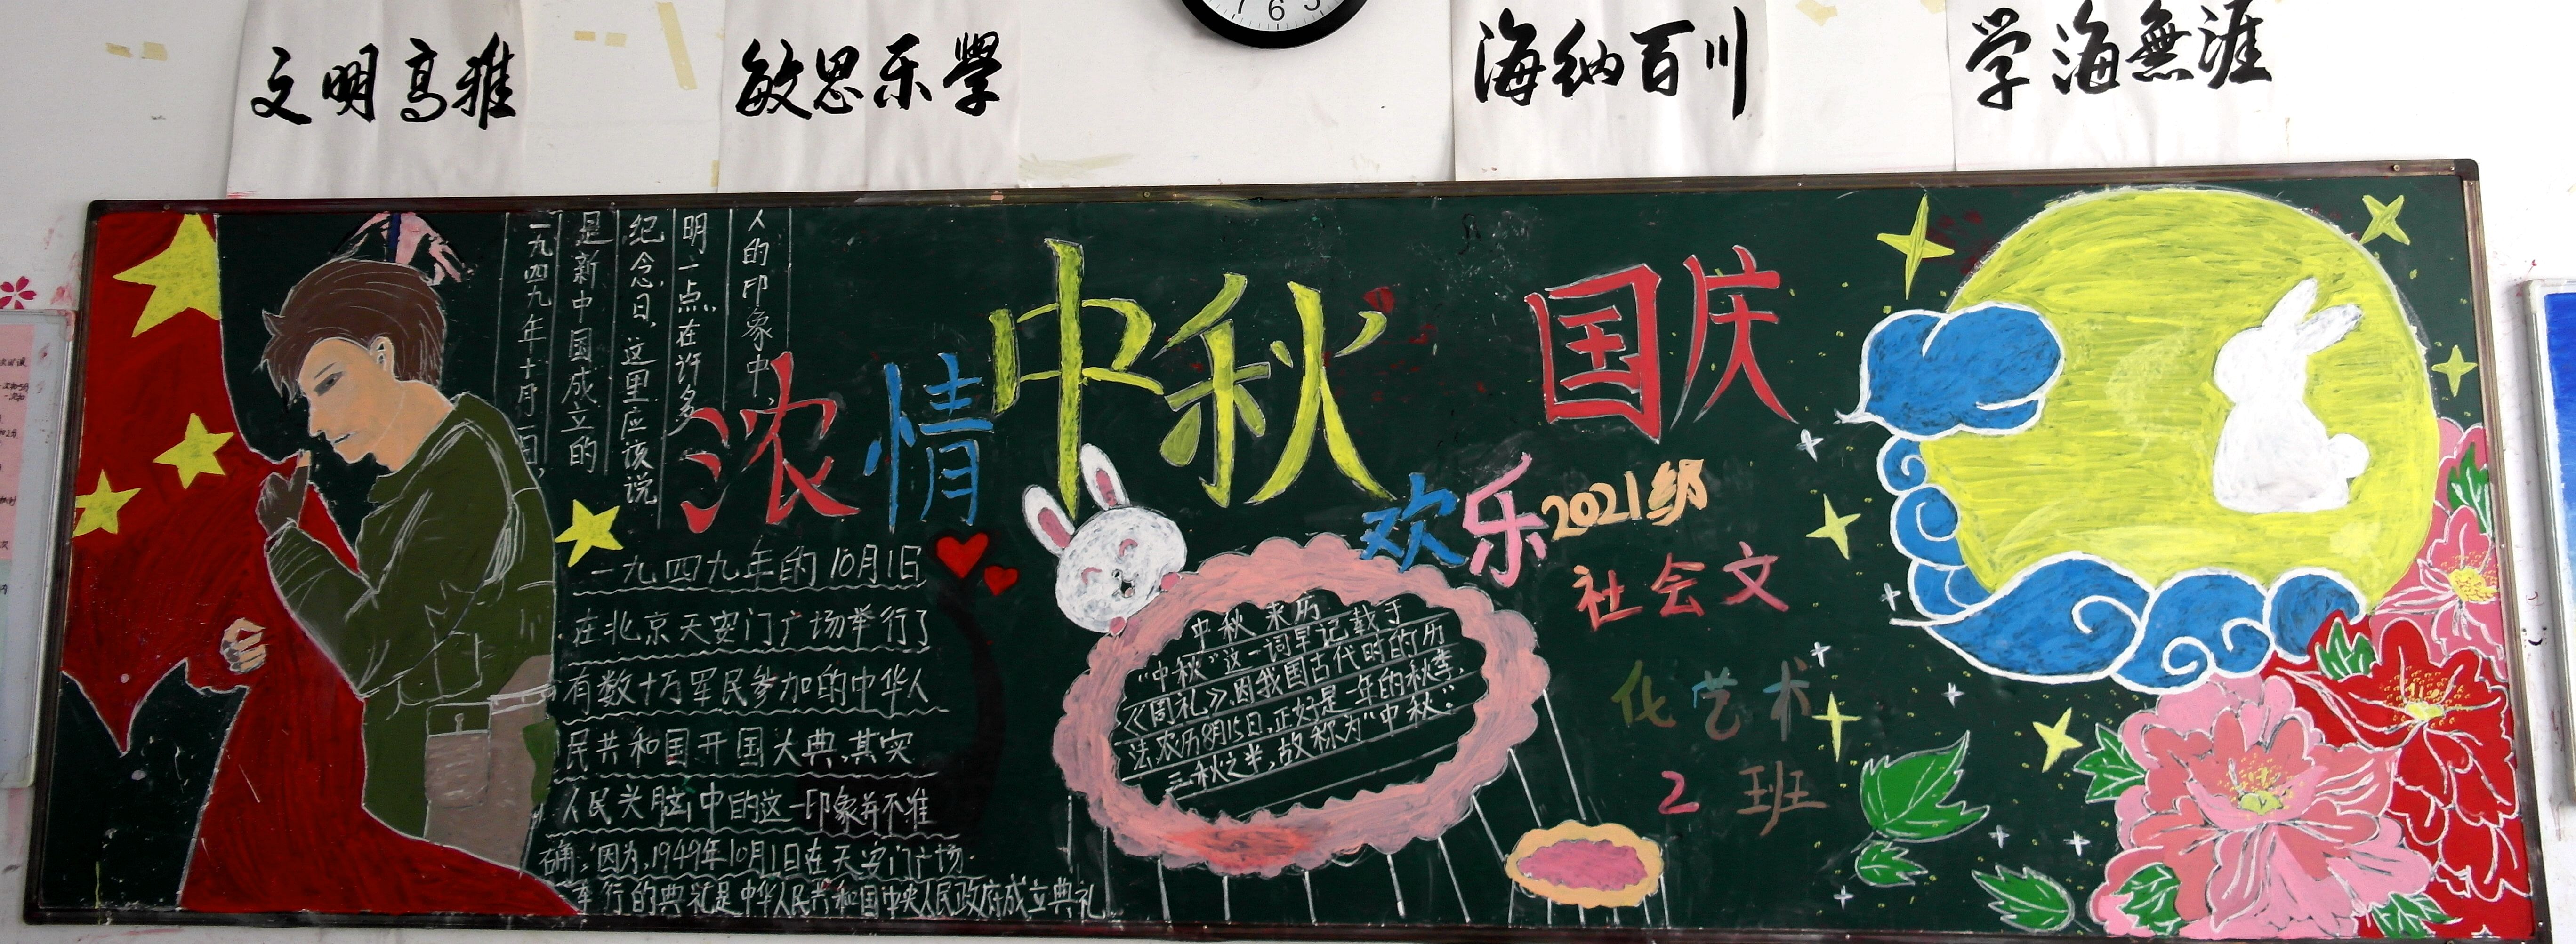 文明高雅
敏思乐學
海纳百川
学海無涯
浓情中秋
国庆
欢乐
2021级
社会文
化艺术
2班
人的印象中
明一点,在许多
纪念日,这里应该说
是新中国成立的
一九四九年十月一日,
一九四九年的10月1日
在北京天安门广场举行了
有数十万军民参加的中华人
民共和国开国大典,其实
人民头脑中的这一印象并不准
确,因为,1949年10月1日在天安门广场
举行的典礼是中华人民共和国中央人民政府成立典礼
中秋来历
"中秋"这一词早记载于
《周礼》,因我国古代时的历
法,农历8月15日,正好是一年的秋季,
三秋之半,故称为"中秋"。